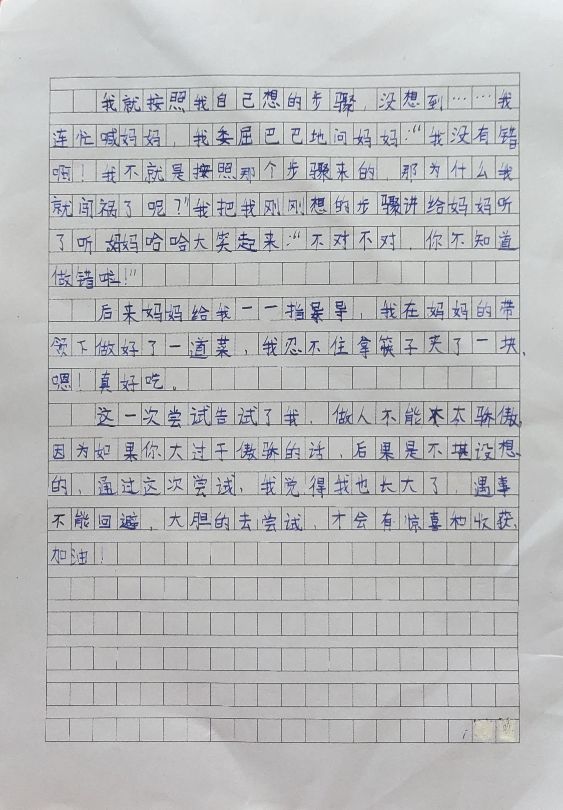 我就按照我自己想的步骤，没想到……我
连忙喊妈妈，我委屈巴巴地问妈妈：“我没有错
啊！我不就是按照那个步骤来的，那为什么我
就闯祸了呢？”我把我刚刚想的步骤讲给妈妈听
了听妈妈哈哈大笑起来：“不对不对，你不知道
做错啦！”
后来妈妈给我一一指导，我在妈妈的带
领下做好了一道菜，我忍不住拿筷子夹了一块，
嗯！真好吃。
这一次尝试告试了我，做人不能太骄傲，
因为如果你大过于傲骄的话，后果是不堪设想
的，通过这次尝试，我觉得我也长大了，遇事
不能回避，大胆的去尝试，才会有惊喜和收获，
加油！